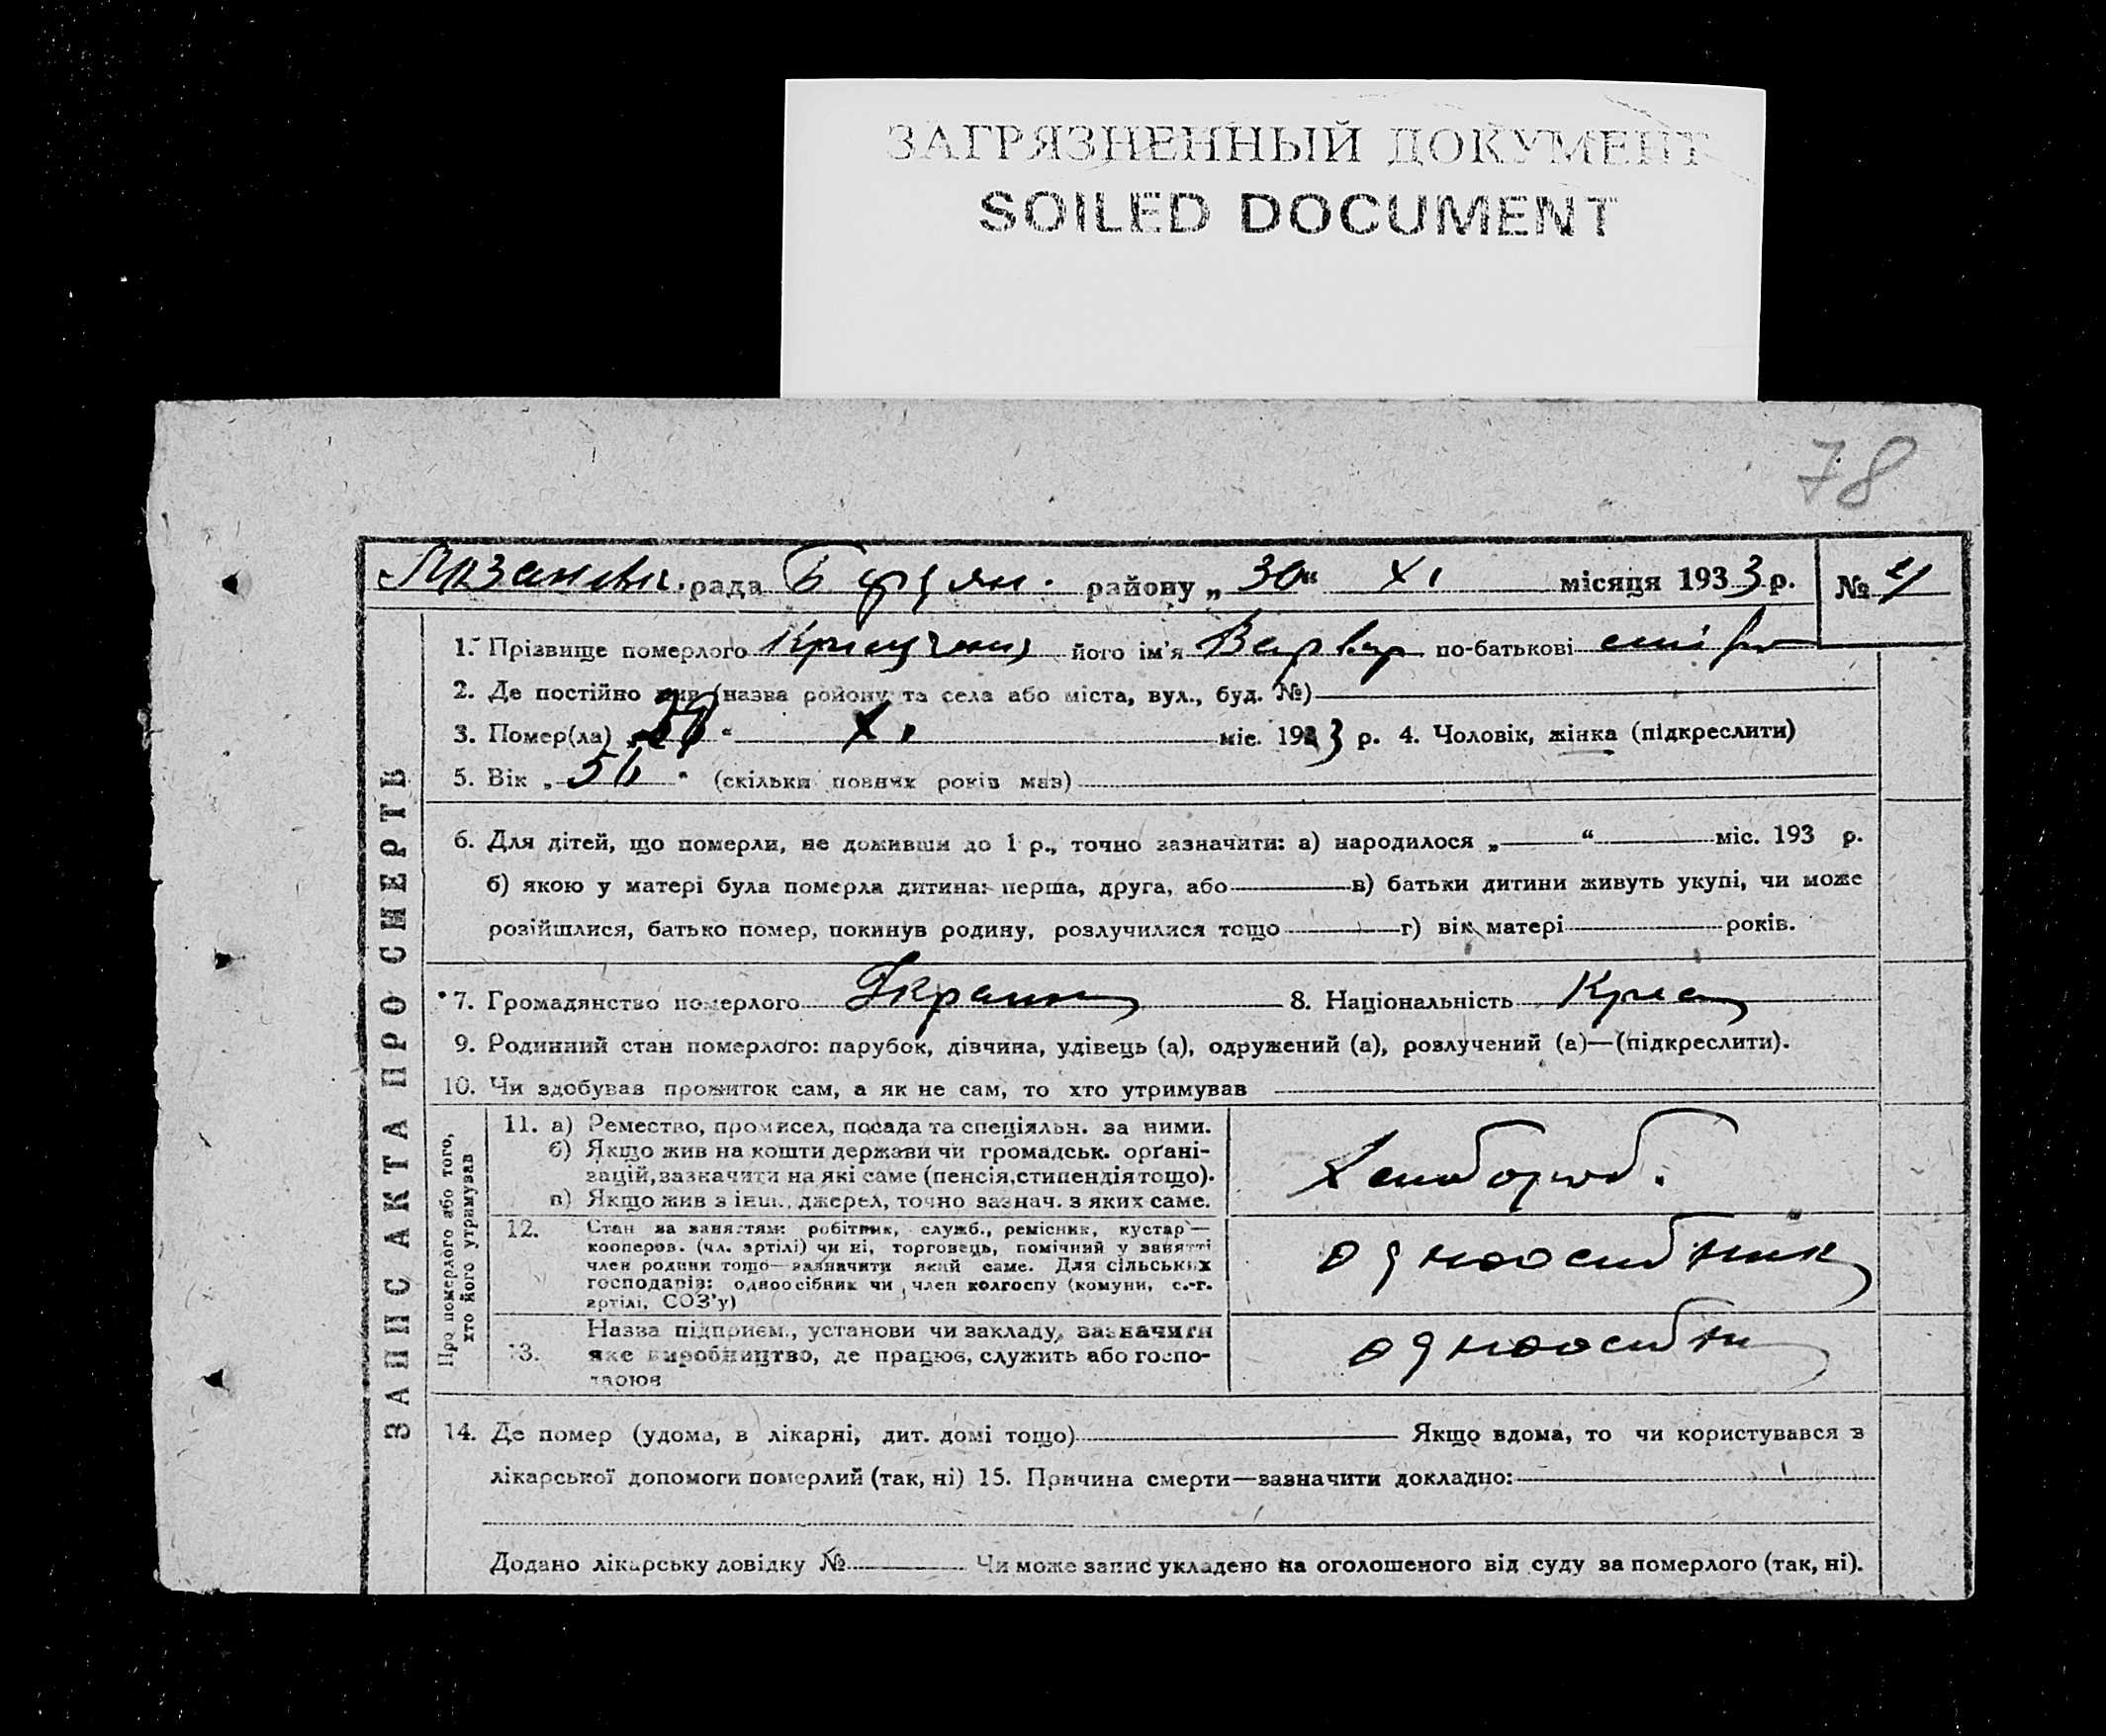 ЗАГРЯЗНЕННЫЙ ДОКУМЕНТ
SOILED DOCUMENT
78
рада району „30“ XI місяця 1933 р. №
ЗАПИС АКТА ПРО СМЕРТЬ
1. Прізвище померлого його ім'я Варвар по-батькові
2. Де постійно жив (назва району та села або міста, вул., буд. №)
3. Помер(ла) „ “ XI міс. 1933 р. 4. Чоловік, жінка (підкреслити)
5. Вік „ “ (скільки повних років мав)
6. Для дітей, що померли, не доживши до 1 р., точно зазначити: а) народилося „ “ міс. 193 р.
б) якою у матері була померла дитина: перша, друга, або в) батьки дитини живуть укупі, чи може
розійшлися, батько помер, покинув родину, розлучилися тощо г) вік матері років.
7. Громадянство померлого 8. Національність
9. Родинний стан померлого: парубок, дівчина, удівець (а), одружений (а), розлучений (а)—(підкреслити).
10. Чи здобував прожиток сам, а як не сам, то хто утримував
Про померлого або того,
хто його утримував
11. а) Ремество, промисел, посада та спеціяльн. за ними.
б) Якщо жив на кошти держави чи громадськ. орґані-
зацій, зазначити на які саме (пенсія, стипендія тощо).
в) Якщо жив з інш. джерел, точно зазнач. з яких саме.
Хлібороб.
12. Стан за заняттям: робітник, служб., ремісник, кустар—
кооперов. (чл. артілі) чи ні, торговець, помічний у занятті
член родини тощо—зазначити який саме. Для сільських
господарів: одноосібник чи член колгоспу (комуни, с.-г.
артілі, СОЗ'у)
одноосібник
13. Назва підприєм., установи чи закладу, зазначити
яке виробництво, де працює, служить або госпо-
дарює
одноосібн
14. Де помер (удома, в лікарні, дит. домі тощо) Якщо вдома, то чи користувався з
лікарської допомоги померлий (так, ні) 15. Причина смерти—зазначити докладно:
Додано лікарську довідку № Чи може запис укладено на оголошеного від суду за померлого (так, ні).